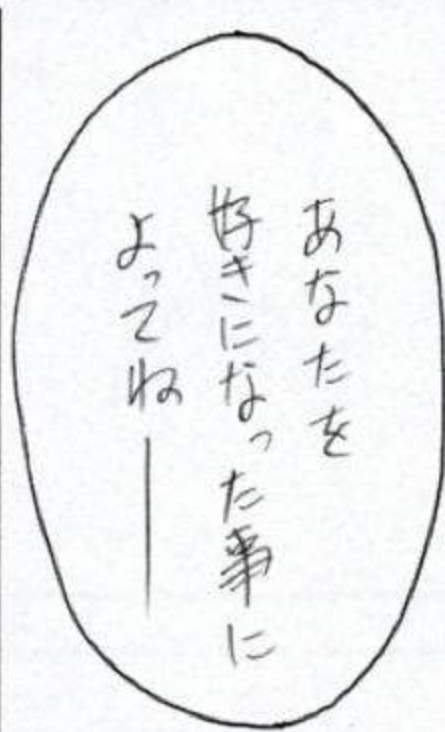 あなたを
好きになった事に
よってね――